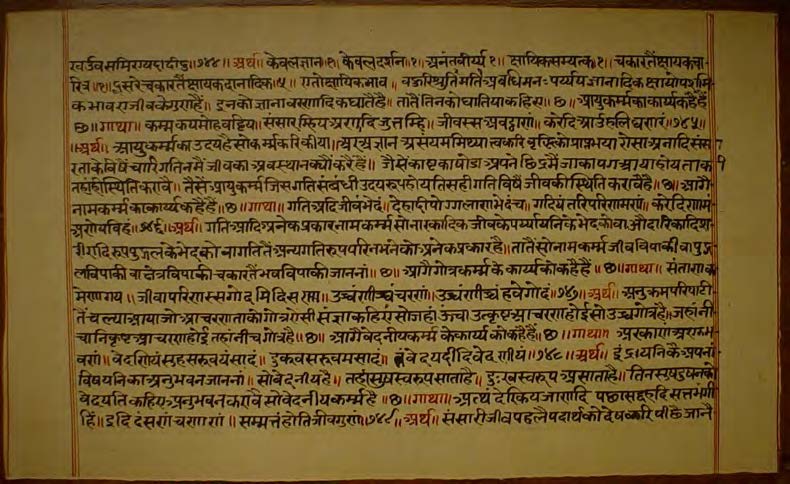 रवर्उवसमिरायदादीदु॥१४४॥ अर्थ। केवलज्ञान॥१॥ केवलदर्शन॥१॥ अनंतवीर्य्य१॥ क्षायिकसम्यत्क॥१॥ चकारतैंक्षायकचा
रित्र॥१॥दुसरेचकारतैंक्षायकदानादिक॥५॥ एतोक्षायिकभाव। वऊरिश्रुतिमतिअवधिमनःपर्य्ययज्ञानादिकक्षायोपशमि
कभावएजीवकेगुणहैं॥ इनकोज्ञानावरणादिकघातेहै॥ तातैतिनकोघातियाकहिए॥छ॥ आयुकर्म्मकाकार्य्यकहैहैं
छ॥गाथा॥ कम्मकयमोहवड्ढिय॥संसारम्हियअणादिजुत्तम्हि॥ जीवस्सअवट्ठाणं॥ करेदिआउहलिव्वणरं॥१४५॥
॥अर्थ॥ आयुकर्म्मकाउदयहैसोकर्म्मकरिकीया॥अरअज्ञानअसंयममिथ्यात्वकरिवृद्धिकोप्राप्तभयाऐसाअनादिसंसा
रताकेविषैंचारिगतिनमैंजीवकाअवस्थानकोंकरैहैं॥ जैसेंकाष्टकाषोडाअपनेछिद्रमैंजाकापगआयाहोयताक
तहांहीस्थितिकरावै॥ तैसेंआयुकर्म्मजिसगतिसंबंधीउदयरुपहोयतिसहीगतिविषैंजीवकीस्थितिकरावैहै॥छ॥आगैं
नामकर्म्मकाकार्य्यकहैहैं॥छ॥गाथा॥ गतिअदिजीवभेदं॥देहादीपोग्गलाणभेदंच॥ गदियंतरपरिणमणं॥ करेदिणामं
अणेयविहं॥१४६॥अर्थ॥ गतिआदिअनेकप्रकारनामकर्म्मसोनारकादिकजीवकेपर्य्यायनिकेभेदकोवाऔदारिकादिश
रीरादिरुपपुद्गलकेभेदकोवागतितैंअन्यगतिरुपपरिनमनकोअनेकप्रकारहै॥तातैसोनामकर्म्मजीवविपाकीवापुद्ग
लविपाकीवाक्षेत्रविपाकीचकारतैंभवविपाकीजाननां॥छ॥ आगैंगोत्रकर्म्मकेकार्य्यकोकहैहैं॥छ॥गाथा॥ संताणक
मेणागय॥जीवायरणस्सगोदमिदिसण्णा॥ उच्चंणीच्चंचरणं॥उच्चंणीच्चंहवेगोदं॥१४७॥अर्थ॥ अनुकमपरिपाटी
तैंचल्याआयाजोआचरणताकोगोत्रऐसीसंज्ञाकहिएसोजहांऊंचाउत्कृष्टआचरणहोईसोउच्चगोत्रहै॥जहांनी
चानिकृष्टआचरणहोईतहांनीचगोत्रहै॥छ॥ आगैंवेदनीयकर्म्मकेकार्य्यकोकहैहैं॥छ॥गाथा॥ अरकाणंअणुभ
वणं॥वेदणियंसुहसरुवयंसादं॥ दुकवसरुवमसादं॥ तंवेदयदीदिवेदणीयं॥१४८॥अर्थ॥ इंद्रीयनिकैअपनां
विषयनिकाअनुभवनजाननां॥ सोवेदनीयहै॥तहांसुषस्वरुपसाताहै॥दुःखस्वरूपअसाताहै॥तिनसुषदुषनको
वेदयतिकहिएअनुभवनकरावैसोवेदनीयकर्म्महै॥छ॥गाथा॥ अत्थंदेरिकयजाणदि पछासद्दहदिसत्तभंगी
हिं॥इदिदंसणंचणाणं॥सम्मत्तंहोंतिजीवगुणा॥१४९॥अर्थ॥ संसारीजीवपहलैपदार्थकोदेषकरिपीछैजानै